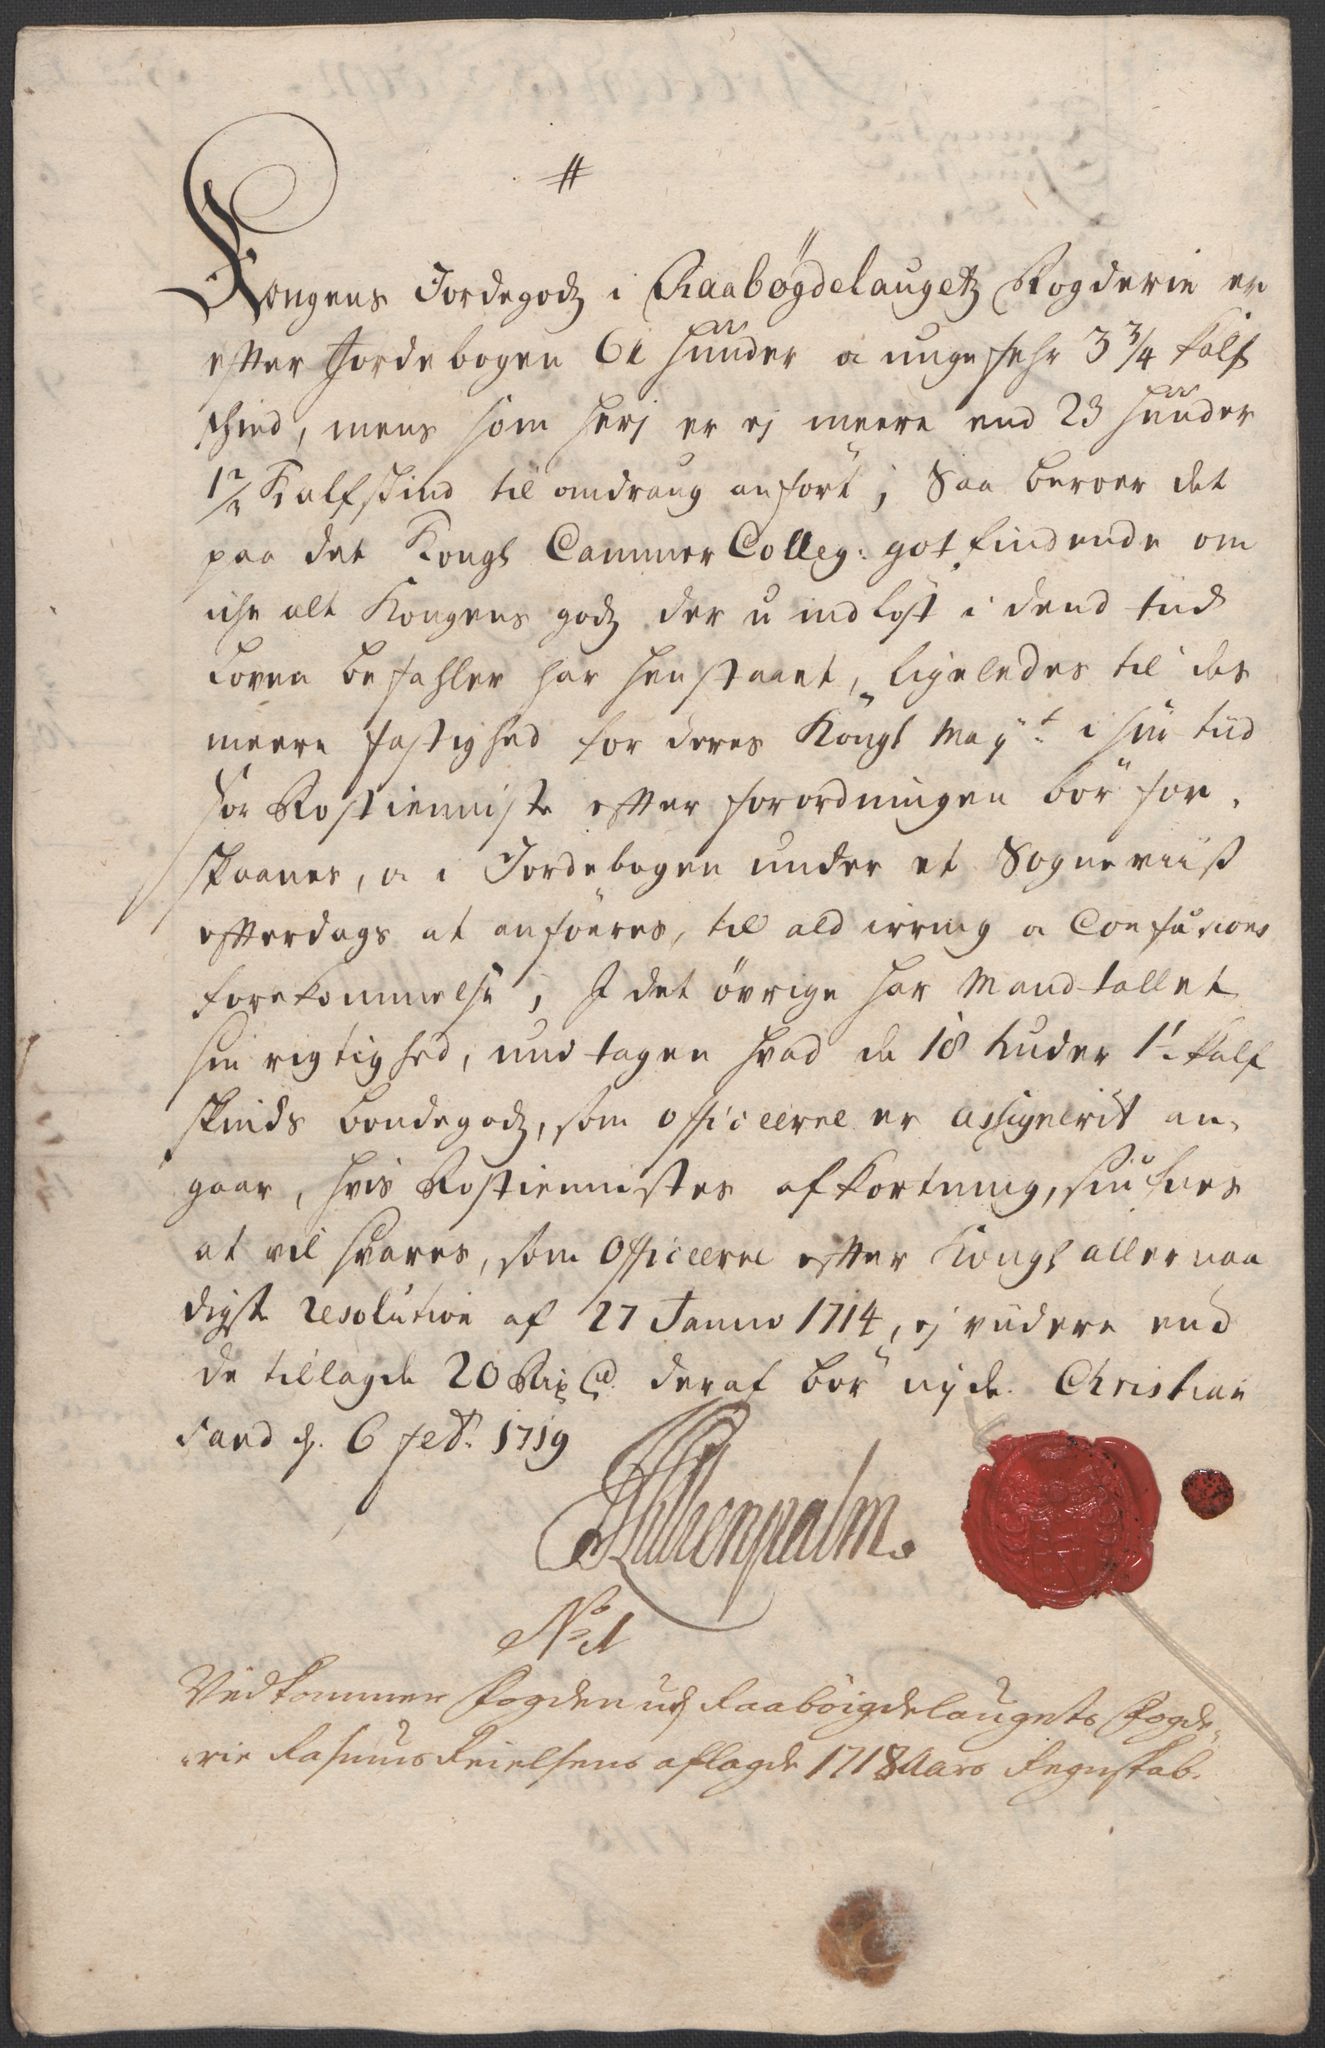 #
Kongens Jordegodz i Raabøgdelaugetz Fogderie er
efter Jordebogen 61 huuder a ungefehr 3 3/4 kalf
skind, mens som herj er ej meere end 23 huuder
1 1/2 Kalfskind til omdraug anført; Saa beroer det
paa det Kongl Cammer Colleg: got findende om
iche alt Kongens godz der u indløst i dend tiid
Loven befahler har henstaaet, ligeledes til des
meere fastighed for deres Kongl Mayt: i sin tiid
for Rostienniste efter forordningen bør for,
skaanes, a i Jordebogen under et Sogneviis
efterdags at anføeres, til ald irring a Confusions
forekommelse, I det øvrige har Mandtallet
sin rigtighed, undtagen hvad de 18 huder 1 1/2 kalf
skinds bondegodz, som Officeerne er assignerit an,
gaar, hvis Rostiennistes afkortning, siunes
at vil svares, som Officeerne efter Kongl allernaa
digste resolution af 27 Januo 1714, ej viidere end
de tillagde 20 Rixd deraf bør nyde. Christian
sand d. 6 febr. 1719
No 1
Vedkommer Fogden udj Raabøigdelaugets Fogde,
rie Rasmus Keielsens aflagde 1718 Aars Regnskab.